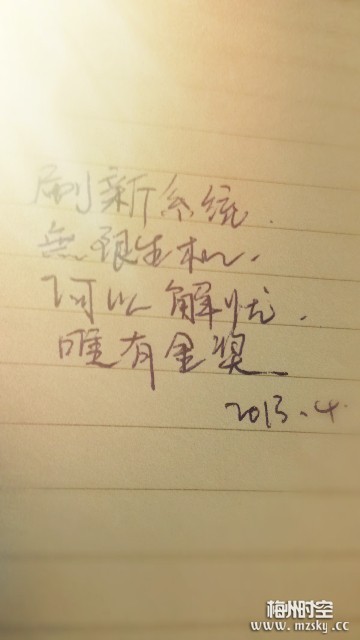 刷新系统.
無限生机.
何以解忧.
唯有金奖
2013.4
梅州时空
www.mzsky.cc